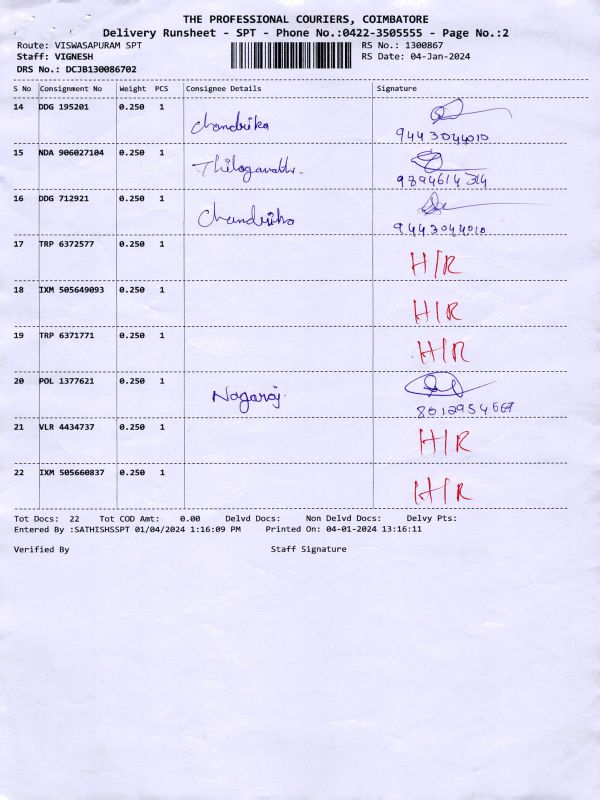 THE PROFESSIONAL COURIERS, COIMBATORE
Delivery Runsheet - SPT - Phone No.:0422-3505555 - Page No.:2
Route: VISWASAPURAM SPT RS No.: 1300867
Staff: VIGNESH RS Date: 04-Jan-2024
DRS No.: DCJB130086702
S No Consignment No Weight PCS Consignee Details Signature
14 DDG 195201 0.250 1
Chandrika 9443044010
15 NDA 906027104 0.250 1
Thilagavathi. 9894614314
16 DDG 712921 0.250 1
Chandrika 9443044010
17 TRP 6372577 0.250 1
H/R
18 IXM 505649093 0.250 1
H/R
19 TRP 6371771 0.250 1
H/R
20 POL 1377621 0.250 1
Nagaraj. 8012954667
21 VLR 4434737 0.250 1
H/R
22 IXM 505660837 0.250 1
H/R
Tot Docs: 22 Tot COD Amt: 0.00 Delvd Docs: Non Delvd Docs: Delvy Pts:
Entered By :SATHISHSSPT 01/04/2024 1:16:09 PM Printed On: 04-01-2024 13:16:11
Verified By Staff Signature